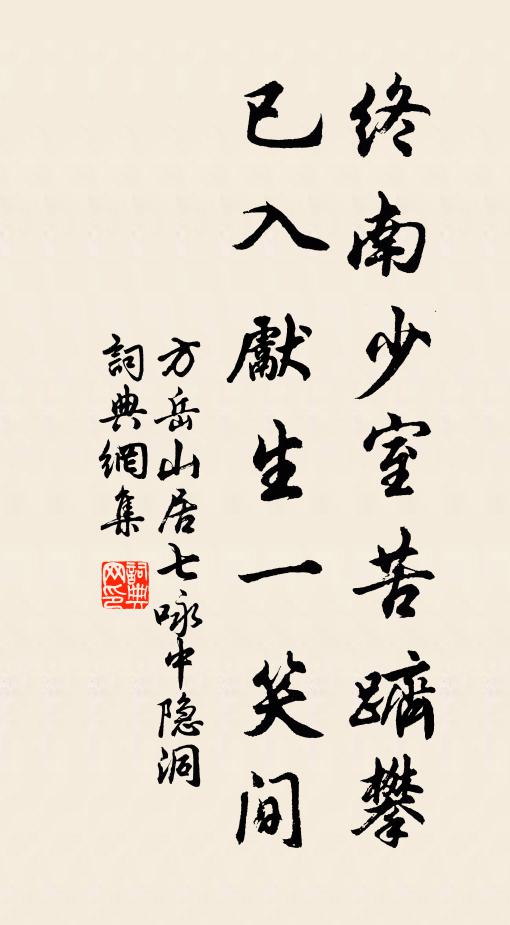 終南少室苦躋攀
已入獻生一笑間
方岳山居七咏中隐洞
詞典網集
詞典网印